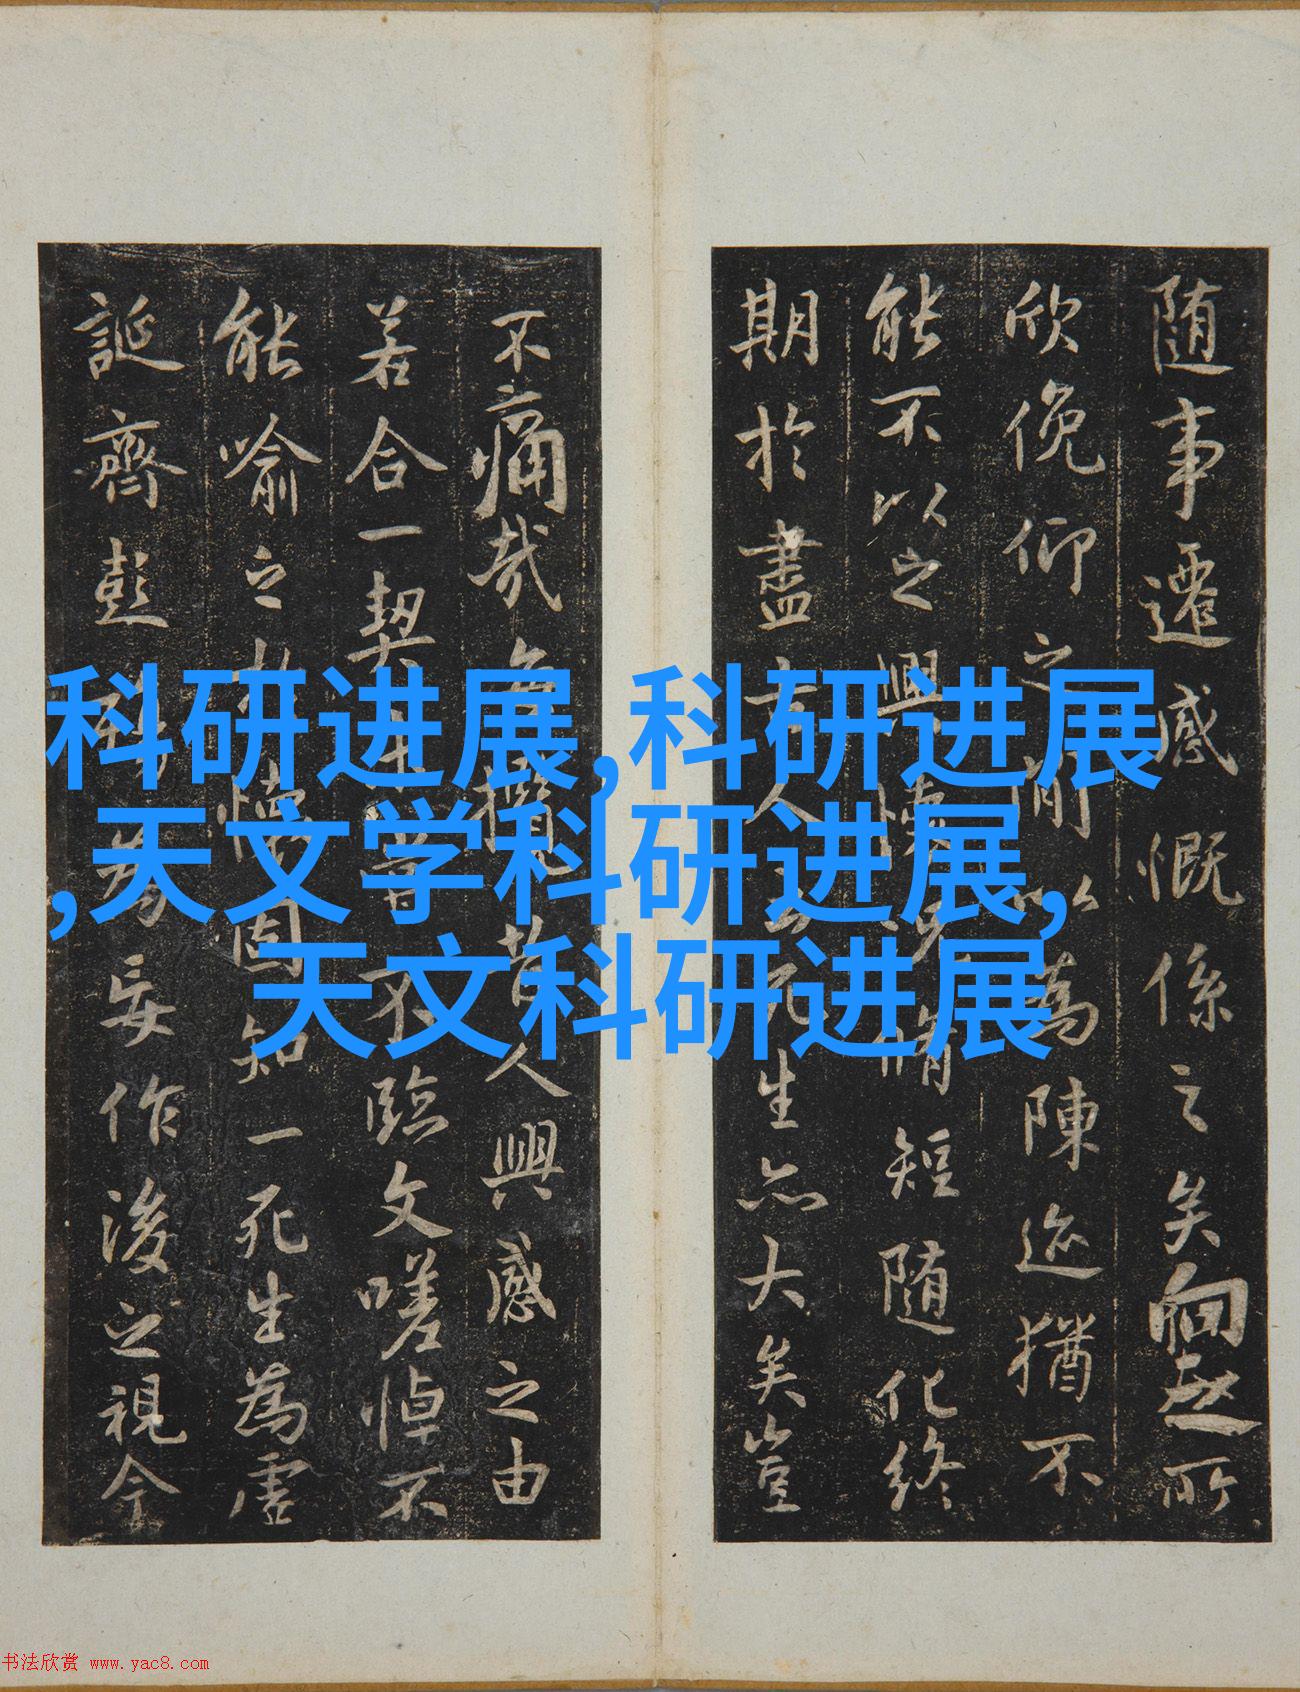 随事遷感慨係之矣向之所
欣俛仰之間以為陳迹猶不
能不以之興懷況脩短随化終
期於盡古人云死生亦大矣豈
不痛哉每攬昔人興感之由
若合一契未嘗不臨文嗟悼不
能喻之於懷固知一死生為虚
誕齊彭殤為妄作後之視今
科研进展,科研进展
,天文学科研进展,
天文科研进展
书法欣赏 www.yac8.com